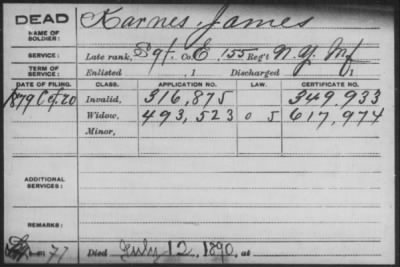 DEAD
NAME OF SOLDIER:
Karnes, James
SERVICE:
Late rank, Sgt. Co. E, 155 Reg't N.Y. Inf
TERM OF SERVICE:
Enlisted , 1 Discharged , 1
DATE OF FILING. CLASS. APPLICATION NO. LAW. CERTIFICATE NO.
1879 Oct 20 Invalid, 316,875 349,933
Widow, 493,523 0 5 617,974
Minor,
ADDITIONAL SERVICES:
REMARKS:
Died July 12, 1890, at
77